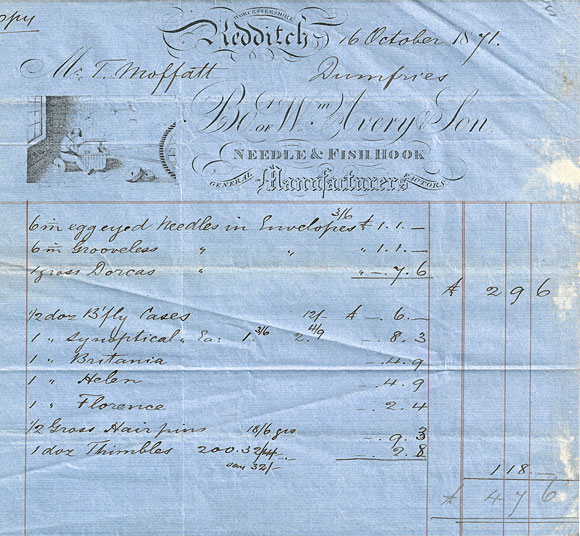 opy
WORCESTERSHIRE
Redditch 16 October 1871.
Mr. T. Moffatt Dumfries
Bot. of Wm. Avery & Son
NEEDLE & FISH HOOK
GENERAL Manufacturers FACTORS
6 m egg eyed Needles in Envelopes 3/6 £ 1.1.—
6 m Grooveless " " " 1.1.—
1 gross Dorcas " " —.7.6
£ 2 9 6
1/2 doz B'fly Cases 12/- £ —.6.—
1 " Synoptical " Ea: 1 3/6 2. 11/9 —.8.3
1 " Britania —.4.9
1 " Helen —.4.9
1 " Florence —.2.4
1/2 Gross Hair pins 18/6 gro —.9.3
1 doz Thimbles 200. 32/ 2.8
say 32/-
1 18.—
£ 4 7 6